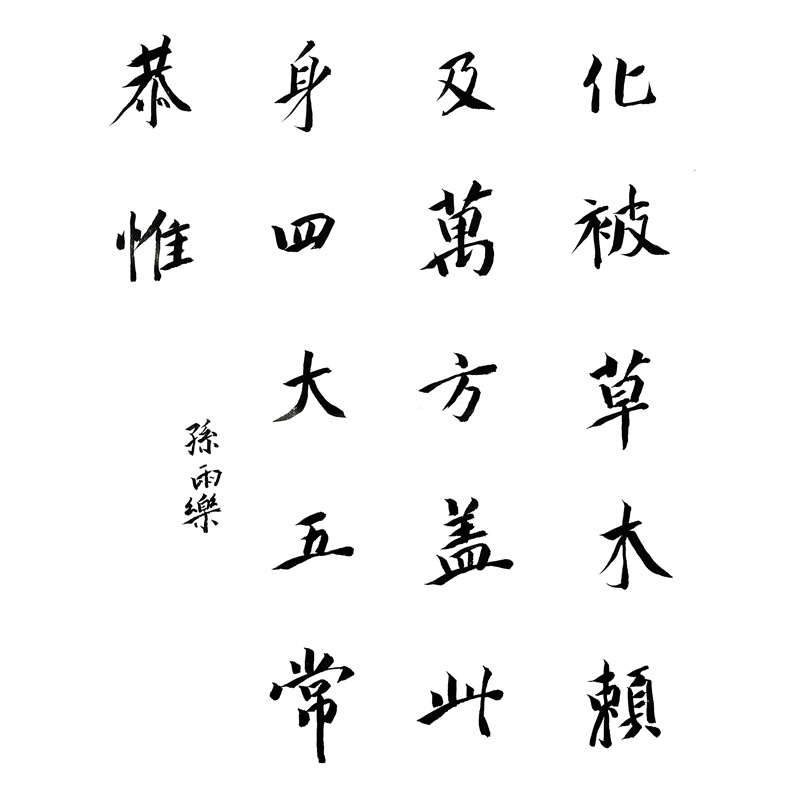 化被草木賴
及萬方盖此
身四大五常
恭惟
孫雨樂